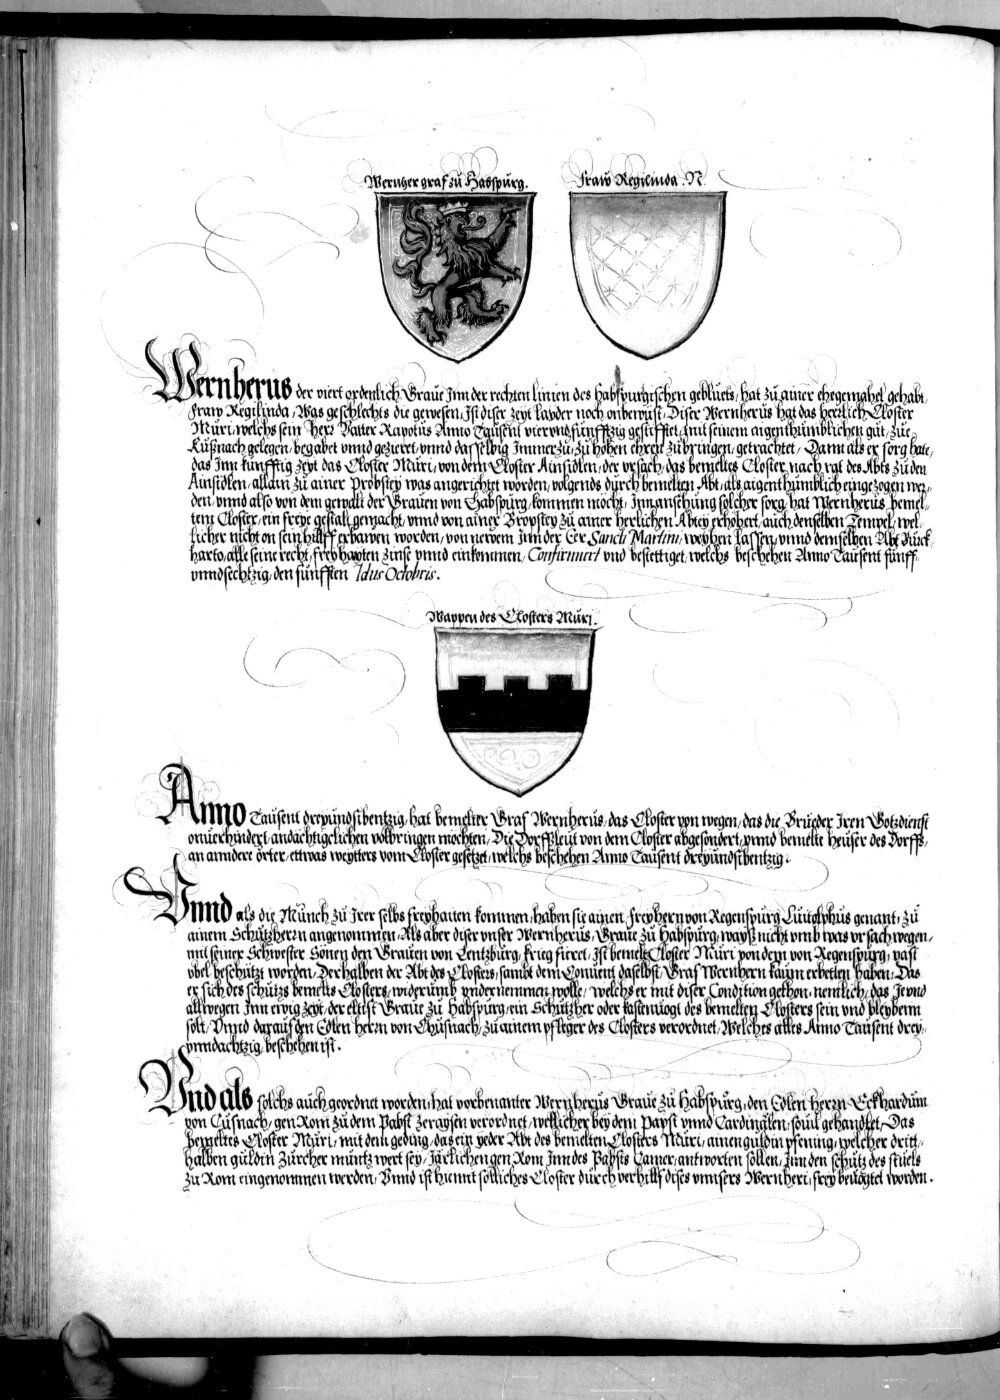 Wernher graf zů Habspürg.
fraw Regilinda .N.
Wernherus der viert ordenlich Graue Inn der rechten linien des habspurgischen geblüets, hat zů ainer ehegemahel gehabt,
fraw Regilinda, Was geschlechts die gewesen, Ist diser zeyt layder noch onbewust. Diser Wernherus hat das herrlich Closter
Müri, welchs sein herr Vatter Rapotus Anno Tausent vierundfünfftzig gestifftet, mit seinem aigenthümblichen gůt, zue
Küßnach gelegen, begabet vnnd gezieret, vnnd dasselbig Immerzů, zů hohen ehren zůbringen, getrachtet, Dann als er sorg hatt,
das Inn künfftig zeyt das Closter Müri, von dem Closter Ainsidlen, der vrsach, das bemeltes Closter, nach rat des Abts zů den
Ainsidlen, allain zů ainer Probstey was angerichtet worden, volgends durch bemelten Abt, als aigenthümblich eingezogen wer-
den, vnnd also von dem gewallt der Grauen von Habspurg, kommen möcht, Innansehung solcher sorg, hat Wernherus bemel-
tem Closter, ein freye gestalt gemacht, vnnd von ainer Bropstey zů ainer herlichen Abtey erhöhert, auch denselben Tempel, wel-
licher nicht on sein hillff erbawen worden, von newem Inn der Eer Sancti Martini, weyhen lassen, vnnd demselben Abt Rück-
harto, alle seine recht, freyhayten zinse vnnd einkommen, Confirmiert vnd bestettiget, welchs beschehen Anno Tausent fünff-
vnndsechtzig, den fünfften Idus Octobris.
Wappen des Closters Müri.
Anno Tausent dreyundsibentzig, hat bemelter Graf Wernherus, das Closter von wegen, das die Brüeder Iren Gotzdienst
onuerhindert, andächtigelichen volbringen möchten, Die Dorffsleut von dem Closter abgesondert, vnnd bemelte heuser des Dorffs,
an anndere örter, ettwas weytters vom Closter gesetzet, welchs beschehen Anno Tausent dreyundsibentzig.
Vnnd als die Münch zů Irer selbs freyhaiten kommen, haben sie ainen freyhern von Regenspurg Luitolphus genant, zů
ainem Schützherrn angenommen, Als aber diser vnser Wernherus, Graue zů Habspurg, wayß nicht vmb was vrsach wegen,
mit seiner Schwester Sönen den Grauen von Lentzburg, krieg fieret, Ist bemelt Closter Müri von dem von Regenspurg, vast
vbel beschützt worden, Derhalben der Abt des Closters, sambt dem Conuent daselbst, Graf Wernhern kaum erbetten haben, Das
er sich des schützs bemelts Closters, widerumb vndernemmen wolle, welchs er mit diser Condition gethon, nemlich, das Je vnd
allwegen Inn ewig zeyt, der eltist Graue zů Habspurg, ein Schützher oder kastenuogt des bemelten Closters sein vnd bleyben
solt, Vnnd darauf den Edlen herrn von Chüsnach, zů ainem pfleger des Closters verordnet, Welches alles Anno Tausent drey-
vnndachtzig, beschehen ist.
Vnd als solchs auch geordnet worden, hat vorbenanter Wernherus Graue zů Habspurg, den Edlen herrn Eckhardum
von Cüsnach, gen Rom zů dem Pabst verordnet, wellicher bey dem Papst vnnd Cardinälen, souil gehandlet, Das
bemeltes Closter Müri, mit dem geding, das ein yeder Abt des bemelten Closters Müri, ainen guldin pfening, welcher dritt-
halben guldin Zürcher müntz wert sey, Järlichen gen Rom Inn des Pabsts Camer, antworten söllen, Inn den schutz des stuels
zů Rom eingenommen werden, Vnnd ist hiemit sölliches Closter durch verhilff dises vnnsers Wernheri, frey beuögtet worden.